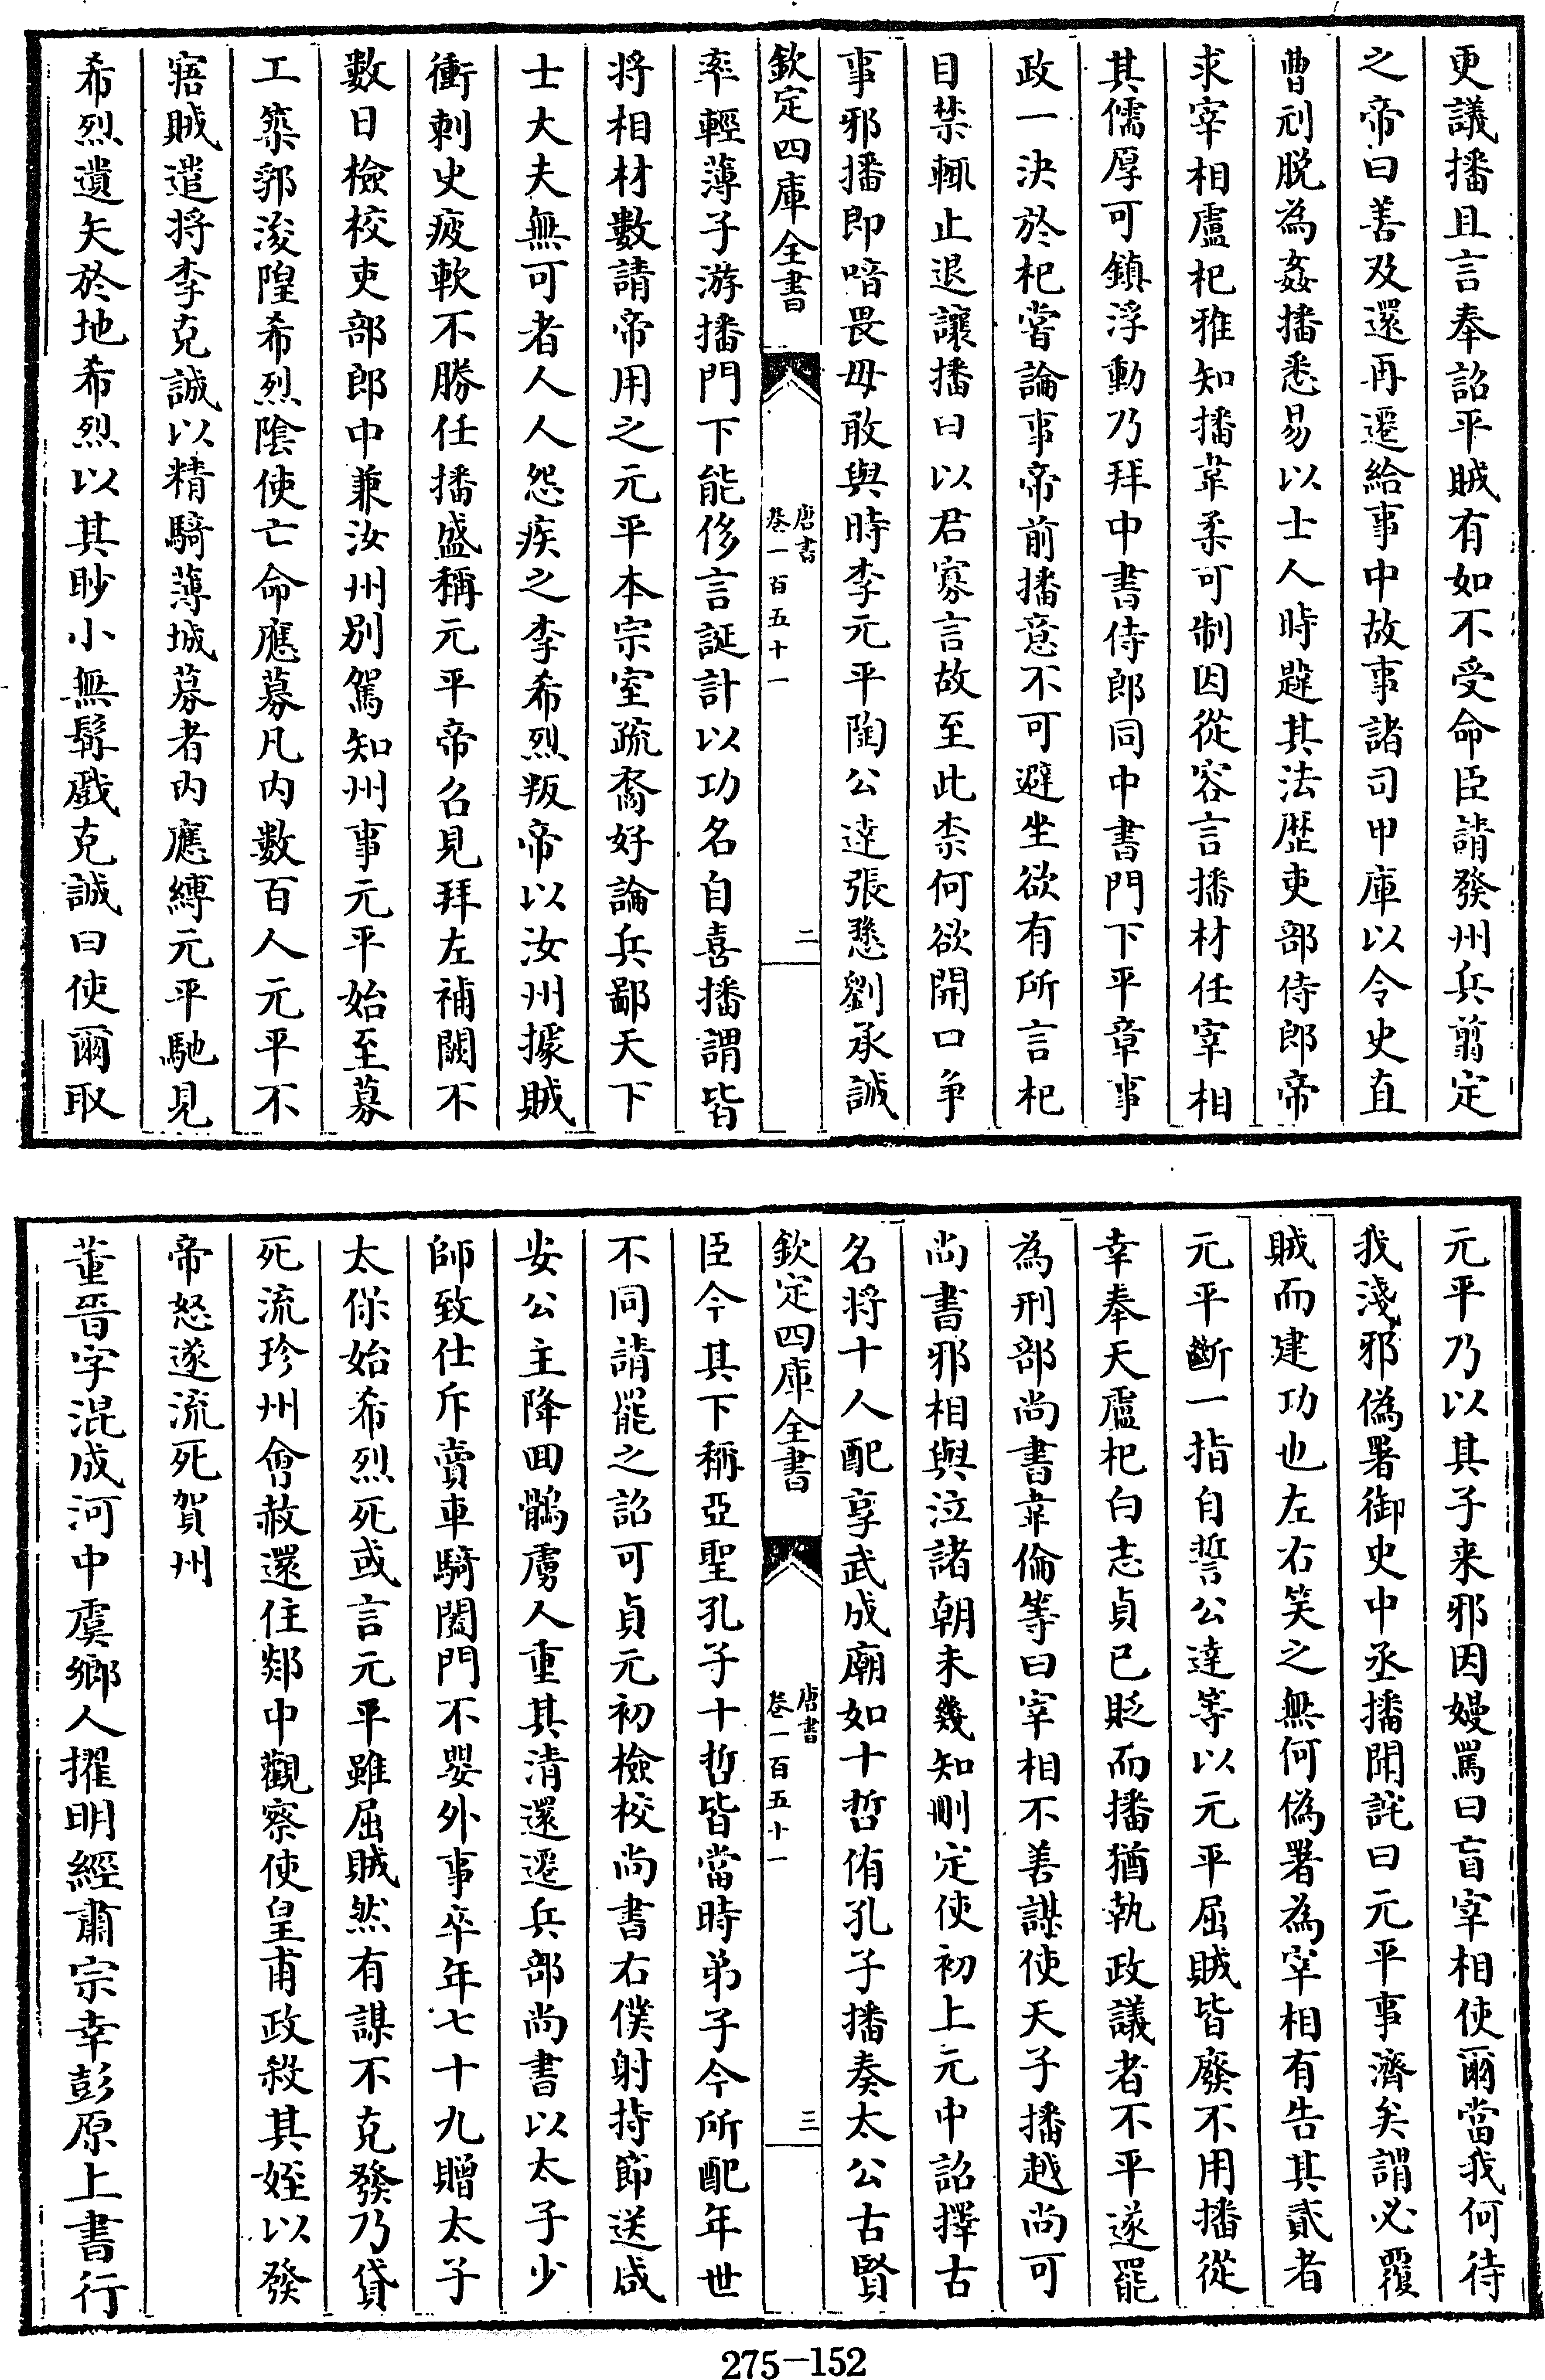 更議播且言奉詔平賊有如不受命臣請發州兵翦定
之帝曰善及還再遷給事中故事諸司甲庫以令史直
曹刓脱為姦播悉易以士人時韙其法歴吏部侍郎帝
求宰相盧杞雅知播韋柔可制因從容言播材任宰相
其儒厚可鎮浮動乃拜中書侍郎同中書門下平章事
政一決於杞嘗論事帝前播意不可避坐欲有所言杞
目禁輒止退讓播曰以君寡言故至此柰何欲開口争
事邪播即喑畏毋敢與時李元平陶公達張愻劉承誡
欽定四庫全書
唐書
卷一百五十一
二
率輕薄子游播門下能侈言誕計以功名自喜播謂皆
将相材數請帝用之元平本宗室疏裔好論兵鄙天下
士大夫無可者人人怨疾之李希烈叛帝以汝州據賊
衝刺史疲軟不勝任播盛稱元平帝召見拜左補闕不
數日檢校吏部郎中兼汝州别駕知州事元平始至募
工築郛浚隍希烈陰使亡命應募凡内數百人元平不
寤賊遣将李克誠以精騎薄城募者内應縛元平馳見
希烈遺矢於地希烈以其眇小無髯戲克誠曰使爾取
元平乃以其子来邪因嫚罵曰盲宰相使爾當我何待
我淺邪偽署御史中丞播聞詫曰元平事濟矣謂必覆
賊而建功也左右笑之無何偽署為宰相有告其貳者
元平斷一指自誓公達等以元平屈賊皆廢不用播從
幸奉天盧杞白志貞已貶而播猶執政議者不平遂罷
為刑部尚書韋倫等曰宰相不善謀使天子播越尚可
尚書邪相與泣諸朝未幾知刪定使初上元中詔擇古
名将十人配享武成廟如十哲侑孔子播奏太公古賢
欽定四庫全書
唐書
卷一百五十一
三
臣今其下稱亞聖孔子十哲皆當時弟子今所配年世
不同請罷之詔可貞元初檢校尚書右僕射持節送咸
安公主降回鶻虜人重其清還遷兵部尚書以太子少
師致仕斥賣車騎闔門不嬰外事卒年七十九贈太子
太保始希烈死或言元平雖屈賊然有謀不克發乃貸
死流珍州會赦還住郯中觀察使皇甫政殺其姪以發
帝怒遂流死賀州
董晋字混成河中虞鄉人擢明經肅宗幸彭原上書行
275-152